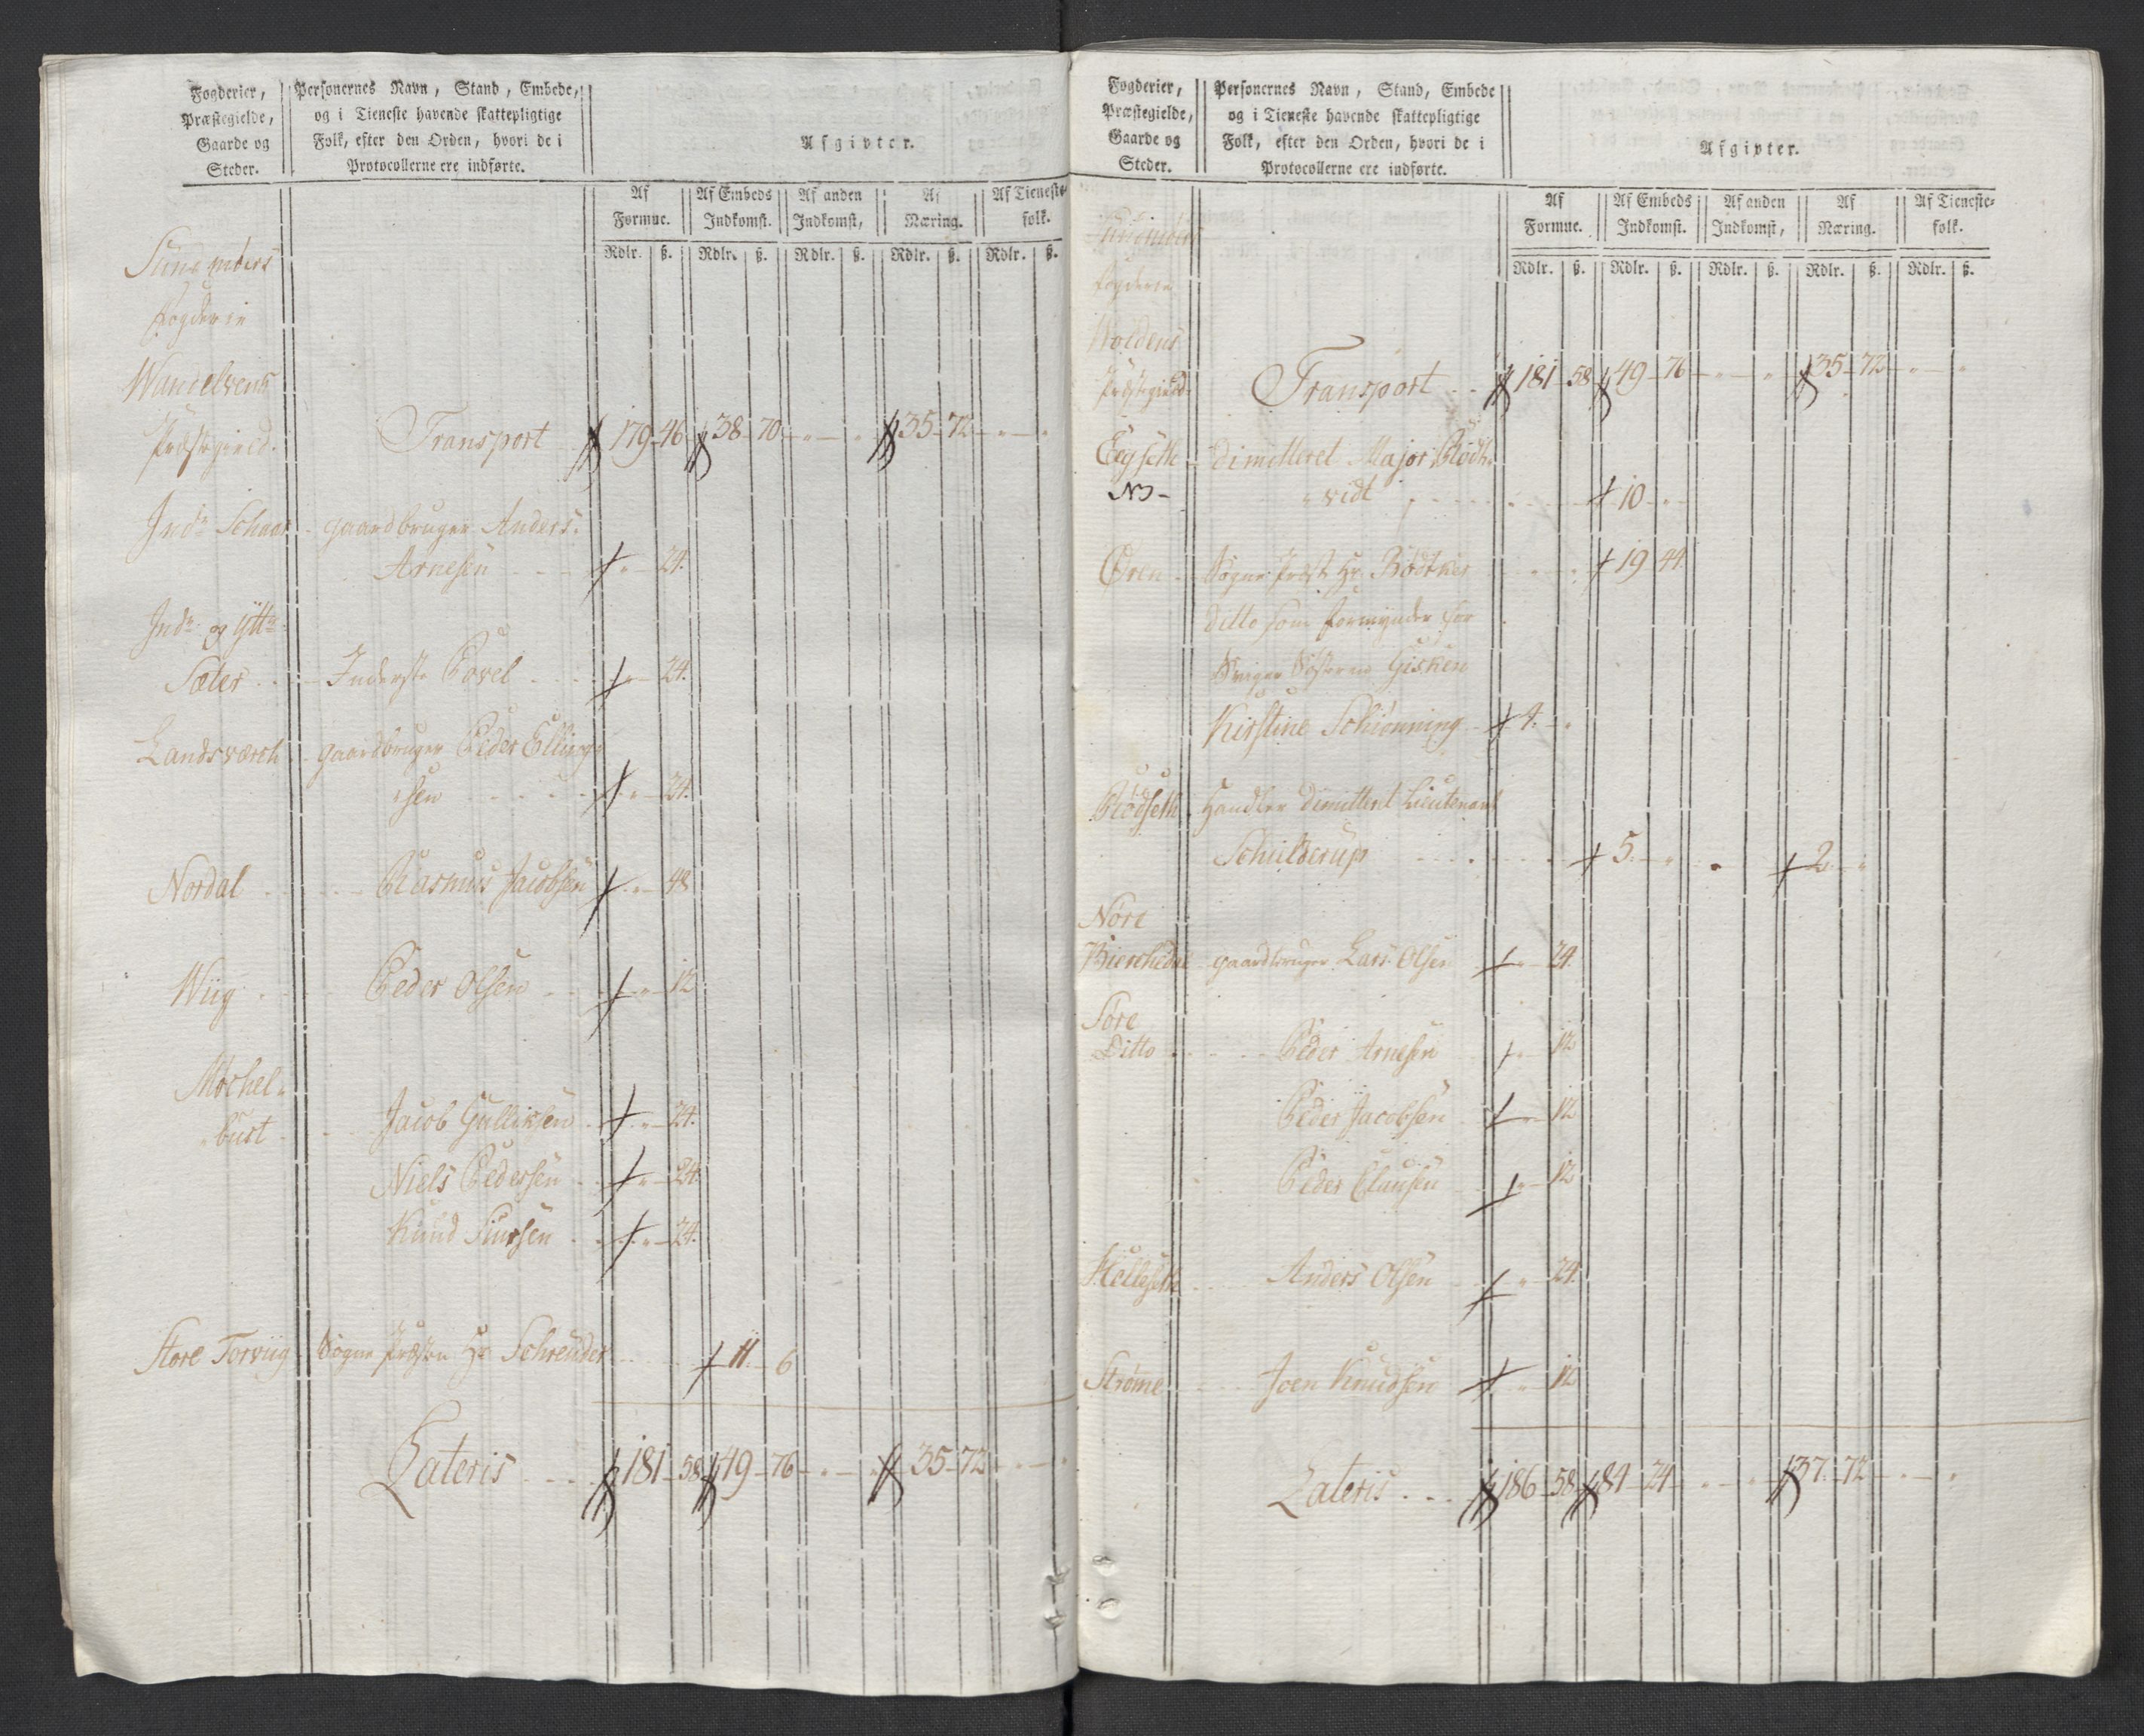 Fogderier,
Præstegielde,
Gaarde og
Steder.
Personernes Navn, Stand, Embede,
og i Tieneste havende skattepligtige
Folk, efter den Orden, hvori de i
Protocollerne ere indførte.
Afgivter.
Af Formue.
Af Embeds Indkomst.
Af anden Indkomst,
Af Næring.
Af Tieneste-folk.
Rdlr. ß. Rdlr. ß. Rdlr. ß. Rdlr. ß. Rdlr. ß.
Sundmøers
Fogderie
Wanelvens
Præstegield. Transport 179 46 38 70 35 72
Indr Schaar gaardbruger Anders
Arnesen 24.
Indr og Yttr
Sæter Inderste Povel 24.
Landsværch gaardbruger Peder Elling
sen 24.
Nordal Rasmus Jacobsen 48
Wiig Peder Olsen 12
Møchel
bust Jacob Gulliksen 24.
Niels Pedersen 24
Knud Siursen 24.
Store Torviig Sogne Præsten Hr Schreuder 11 6
Lateris 181 58 49 76 35 72
Fogderier,
Præstegielde,
Gaarde og
Steder.
Personernes Navn, Stand, Embede
og i Tieneste havende skattepligtige
Folk, efter den Orden, hvori de i
Protocollerne ere indførte.
Afgivter.
Af Formue.
Af Embeds Indkomst.
Af anden Indkomst,
Af Næring.
Af Tieneste-folk.
Rdlr. ß. Rdlr. ß. Rdlr. ß. Rdlr. ß. Rdlr. ß.
Sundmøers
Fogderie
Woldens
Præstegield Transport 181 58 49 76 35 72
Eegseth dimitteret Major
vidt 10
Øren Sogne Præst Hr. Bødtker 19 44
ditto som formynder for
Sviger Søsteren Gisken
Kirstine Schiønning 4.
Rødseth Handler Dimittert Lieutenant
Schielderup 5 2
Nøre
gaardbruger Lars Olsen 24.
Søre
Ditto Peder Arnesen 12
Peder Jacobsen 12
Peder Clausen 12
Helleseth Anders Olsen 24.
Strøme Joen Knudsen 12
Lateris 186 58 84 24 37 72